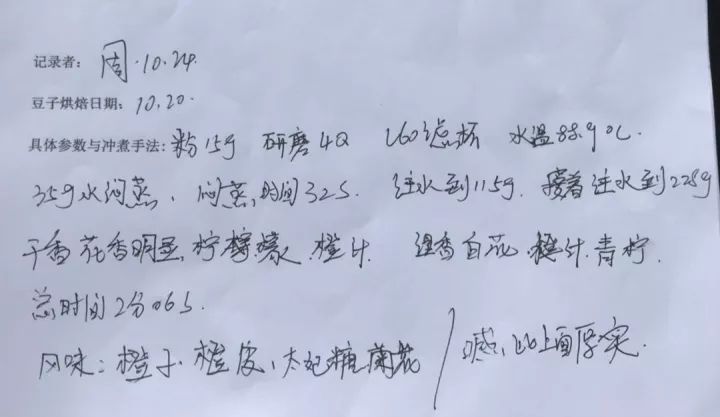 记录者: 周.10.24.
豆子烘焙日期: 10.20.
具体参数与冲煮手法: 粉15g 研磨4Q V60滤杯 水温88.9℃.
35g水闷蒸, 闷蒸时间32s. 注水到115g. 接着注水到228g
干香 花香明显, 柠檬, 橙汁. 湿香 白花. 橙汁. 青柠.
总时间2分06s.
风味: 橙子、橙皮、太妃糖 菊花 / 感, 比上面厚实.